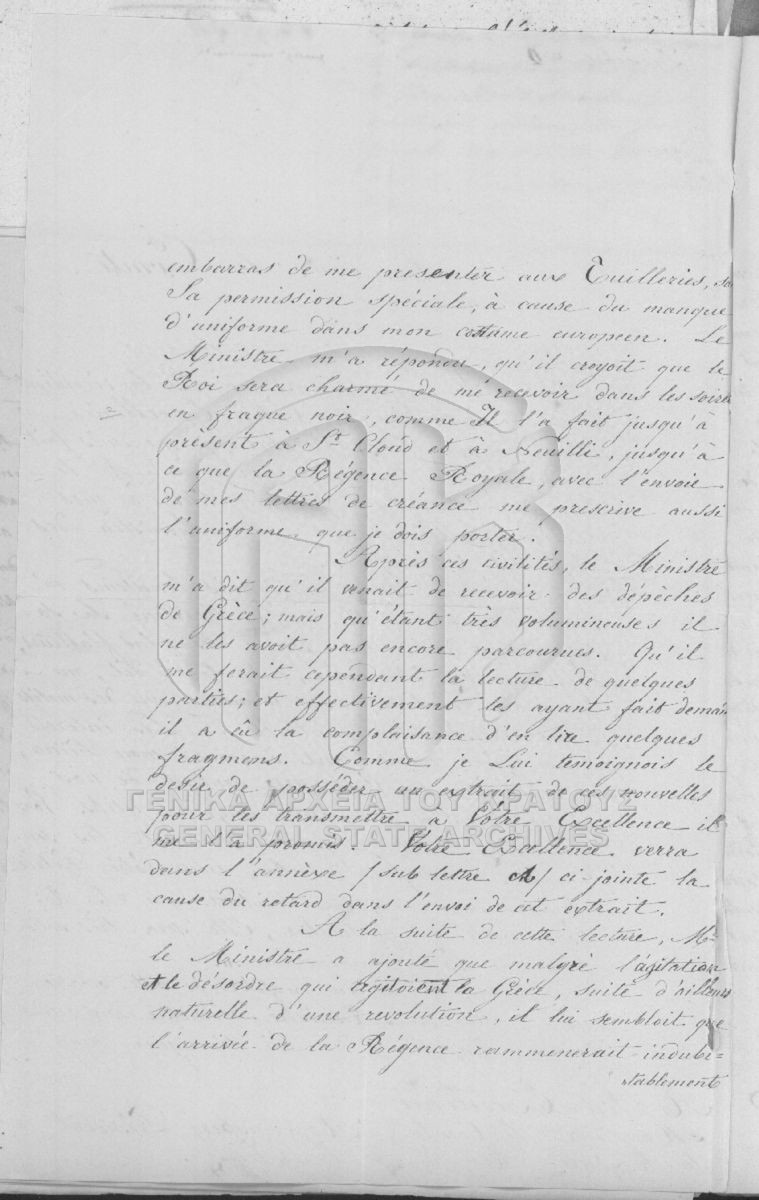 embarras de me presenter aux Tuilleries,
Sa permission spéciale, à cause du manque
d'uniforme dans mon costume européen. Le
Ministre m'a répondu, qu'il croyoit que le
Roi sera charmé de me recevoir dans les soirées
en fraque noir, comme Il l'a fait jusqu'à
présent à St. Cloud et à Neuilli, jusqu'à
ce que la Régence Royale, avec l'envoie
de mes lettres de créance me prescrive aussi
l'uniforme que je dois porter.
Après ces civilités, le Ministre
m'a dit qu'il venait de recevoir des dépêches
de Grèce; mais qu'étant très volumineuses il
ne les avoit pas encore parcourues. Qu'il
me ferait cependant la lecture de quelques
parties; et effectivement les ayant fait deman
il a eû la complaisance d'en lire quelques
fragmens. Comme je Lui temoignois le
desir de posséder un extrait de ces nouvelles
ΓΕΝΙΚΑ ΑΡΧΕΙΑ ΤΟΥ ΚΡΑΤΟΥΣ
pour les transmettre à Votre Excellence il
GENERAL STATE ARCHIVES
me l'a promis. Votre Excellence verra
dans l'annèxe /sub lettre A/ ci-jointe la
cause du retard dans l'envoi de cet extrait.
A la suite de cette lecture, Mr.
le Ministre a ajouté que malgré l'agitation
et le désordre qui agitoient la Grèce, suite d'ailleurs
naturelle d'une revolution, il lui sembloit que
l'arrivée de la Régence rammenerait indubi=
=tablement